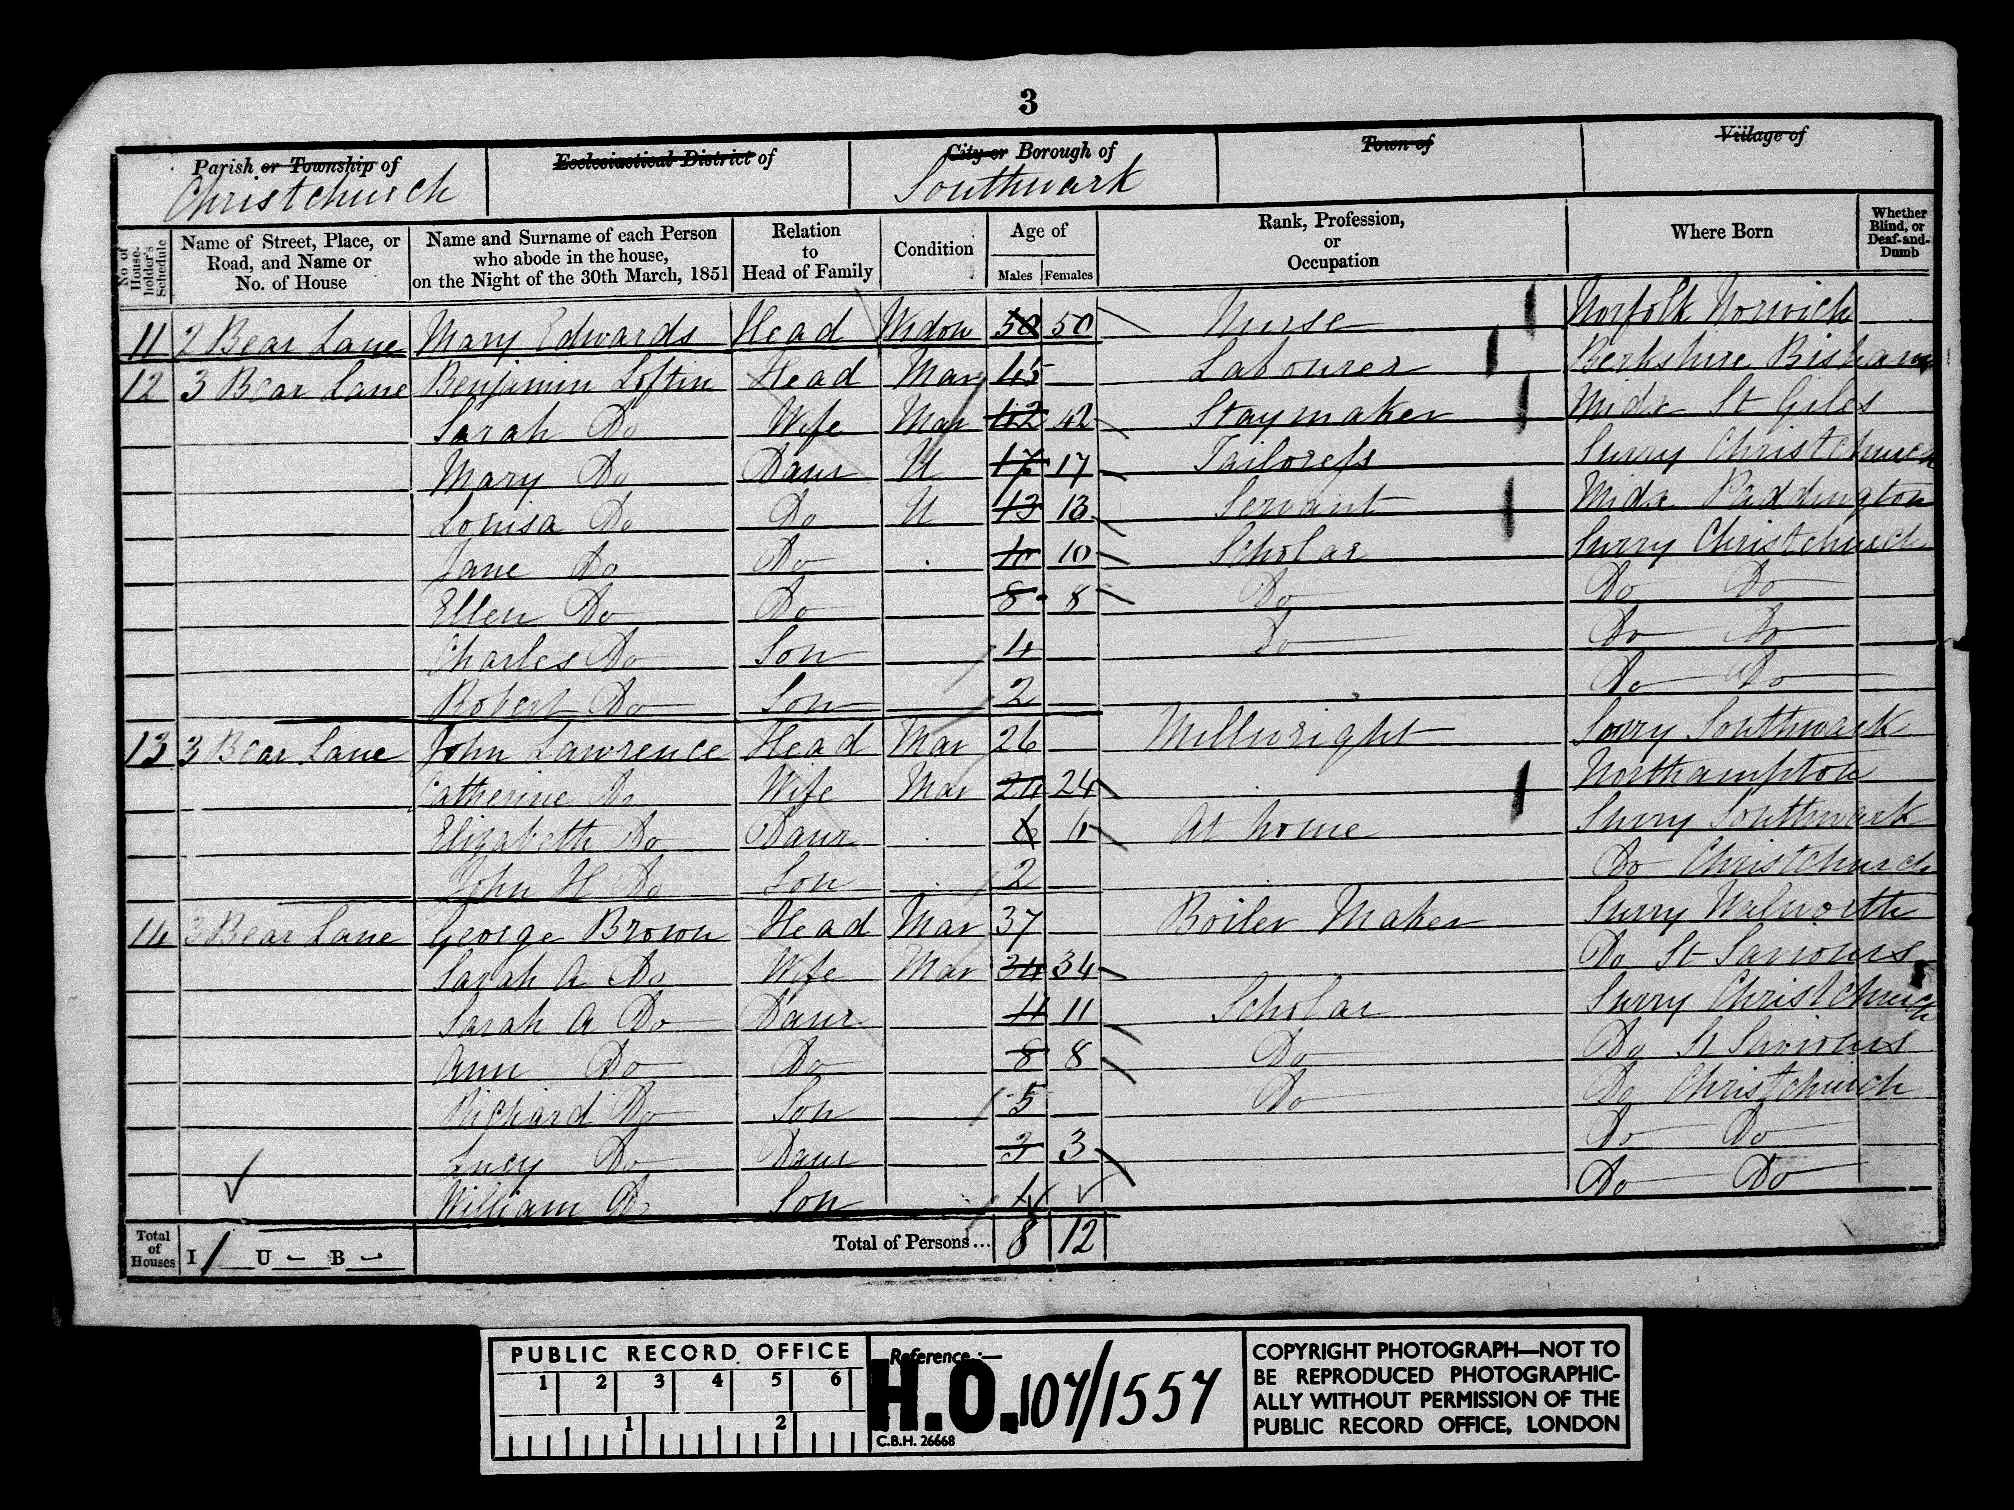 3
Parish or Township of Ecclesiastical District of City or Borough of Town of Village of
Christchurch Southwark
No. of House-holder's Schedule Name of Street, Place, or Road, and Name or No. of House Name and Surname of each Person who abode in the house, on the Night of the 30th March, 1851 Relation to Head of Family Condition Age of Males Females Rank, Profession, or Occupation Where Born Whether Blind, or Deaf-and-Dumb
11 2 Bear Lane Mary Edwards Head Widow 50 50 Nurse Norfolk Norwich
12 3 Bear Lane Benjamin Loftin Head Mar 45 Labourer Berkshire Bisham
Sarah Do Wife Mar 42 42 Staymaker Midx St Giles
Mary Do Daur U 17 17 Tailoress Surry Christchurch
Louisa Do Do U 13 13 Servant Midx Paddington
Jane Do Do 10 10 Scholar Surry Christchurch
Ellen Do Do 8 8 Do Do Do
Charles Do Son 4 Do Do Do
Robert Do Son 2 Do Do
13 3 Bear Lane John Lawrence Head Mar 26 Millwright Surry Southwark
Catherine Do Wife Mar 24 24 Northampton
Elizabeth Do Daur 6 6 At home Surry Southwark
John H Do Son 2 Do Christchurch
14 3 Bear Lane George Brown Head Mar 37 Boiler Maker Surry Walworth
Sarah A Do Wife Mar 34 34 Do St Saviours
Sarah A Do Daur 11 11 Scholar Surry Christchurch
Ann Do Do 8 8 Do Do St Saviours
Richard Do Son 5 Do Do Christchurch
Lucy Do Daur 3 3 Do Do
William Do Son Do Do
Total of Houses I 1 U - B - Total of Persons... 8 12
PUBLIC RECORD OFFICE
1 2 3 4 5 6
1 2
Reference :-
H.O. 107/1557
C.B.H. 26668
COPYRIGHT PHOTOGRAPH—NOT TO
BE REPRODUCED PHOTOGRAPHIC-
ALLY WITHOUT PERMISSION OF THE
PUBLIC RECORD OFFICE, LONDON